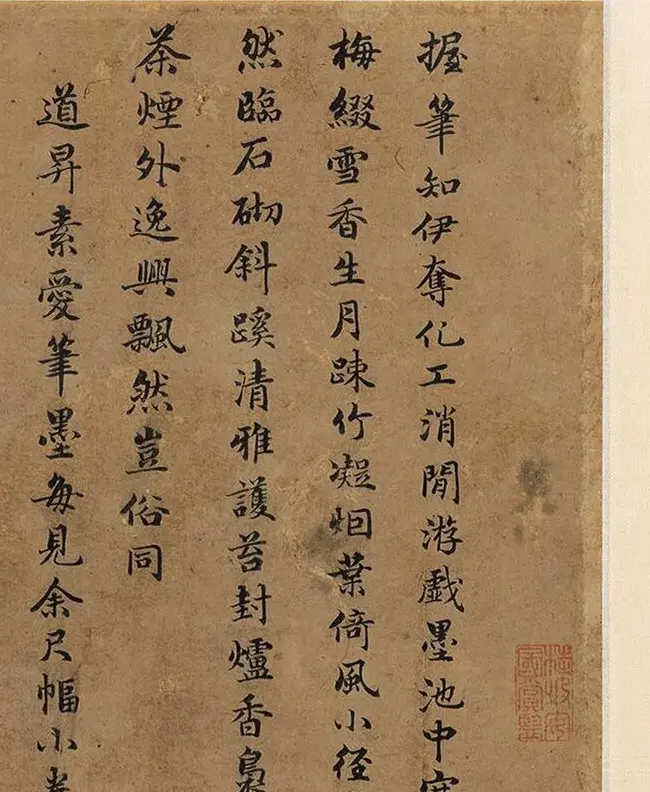 握筆知伊奪化工消閒游戲墨池中寒
梅綴雪香生月踈竹凝烟葉倚風小径
然臨石砌斜蹊清雅護苔封爐香裊
茶煙外逸興飄然豈俗同
道昇素愛筆墨每見余尺幅小卷